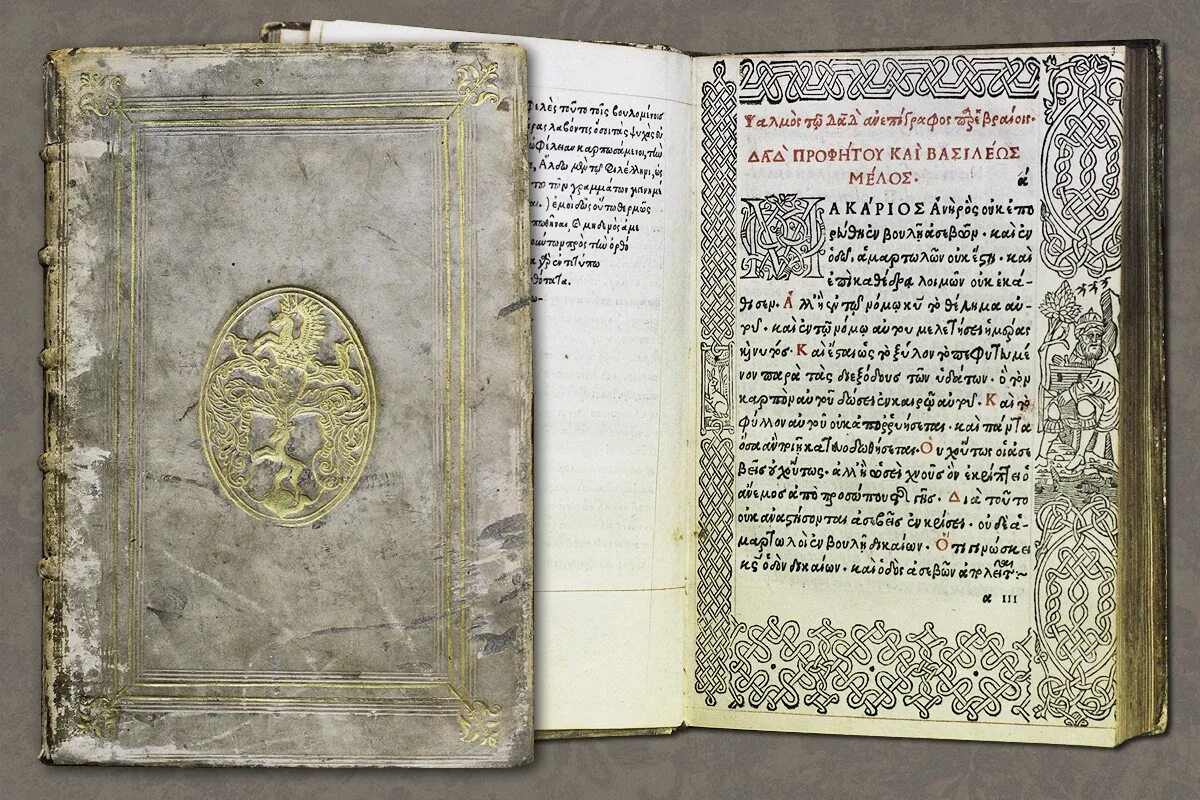 φελὲς τοῦτο τοῖς βουλομένοις
λαβόντες
καρπωσάμενοι, τῶν
Ἄλδῳ μὲν τῷ φιλέλληνι, ὡς
τῶν γραμμάτων
ἐμοὶ οὕτω θερμῶς
πρὸς τὴν
Ψαλμὸς τῷ Δαδ ἀνεπίγραφος παρ' ἑβραίοις.
ΔΑΔ ΠΡΟΦΗΤΟΥ ΚΑῚ ΒΑΣΙΛΈΩΣ
ΜΈΛΟΣ.
ά
ΜΑΚΆΡΙΟΣ ἀνὴρ ὃς οὐκ ἐπο
ρεύθη ἐν βουλῇ ἀσεβῶν. καὶ ἐν
ὁδῷ ἁμαρτωλῶν οὐκ ἔστη. καὶ
ἐπὶ καθέδρᾳ λοιμῶν οὐκ ἐκά-
θισεν. Ἀλλ' ἢ ἐν τῷ νόμῳ κυ τὸ θέλημα αὐ-
τοῦ. καὶ ἐν τῷ νόμῳ αὐτοῦ μελετήσει ἡμέρας
καὶ νυκτός. Καὶ ἔσται ὡς τὸ ξύλον τὸ πεφυτευμέ
νον παρὰ τὰς διεξόδους τῶν ὑδάτων. ὃ τὸν
καρπὸν αὐτοῦ δώσει ἐν καιρῷ αὐτοῦ. Καὶ τὸ
φύλλον αὐτοῦ οὐκ ἀπορρυήσεται. καὶ πάντα
ὅσα ἂν ποιῇ κατευοδωθήσεται. Οὐχ οὕτως οἱ ἀσε
βεῖς οὐχ οὕτως. ἀλλ' ἢ ὡσεὶ χνοῦς ὃν ἐκρίπτει ὁ
ἄνεμος ἀπὸ προσώπου τῆς γῆς. Διὰ τοῦτο
οὐκ ἀναστήσονται ἀσεβεῖς ἐν κρίσει. οὐδὲ ἁ-
μαρτωλοὶ ἐν βουλῇ δικαίων. Ὅτι γινώσκει
κς ὁδὸν δικαίων. καὶ ὁδὸς ἀσεβῶν ἀπολεῖται:~
α III